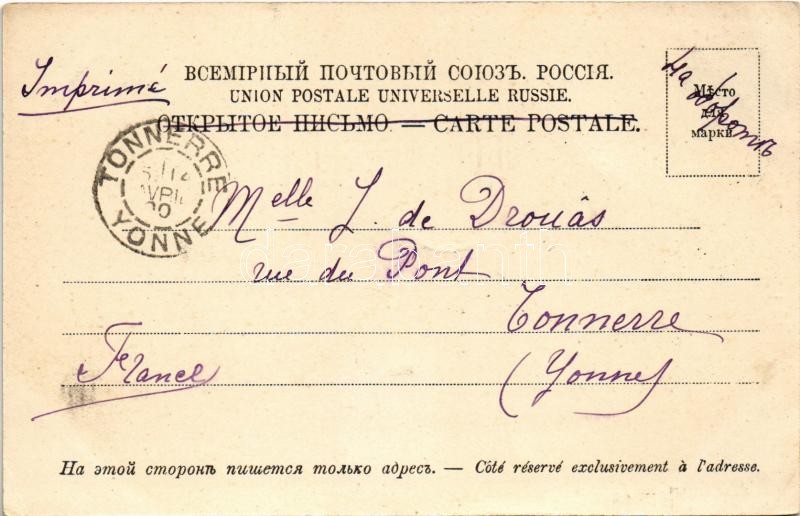 Imprimé
ВСЕМІРНЫЙ ПОЧТОВЫЙ СОЮЗЪ. РОССІЯ.
UNION POSTALE UNIVERSELLE RUSSIE.
ОТКРЫТОЕ ПИСЬМО. — CARTE POSTALE.
Мѣсто
для
марки.
на оборотѣ
TONNERRE
AVRIL
YONNE
Melle L. de Drouâs
rue du Pont
Tonnerre
(Yonne)
France
На этой сторонѣ пишется только адресъ. — Côté réservé exclusivement à l'adresse.